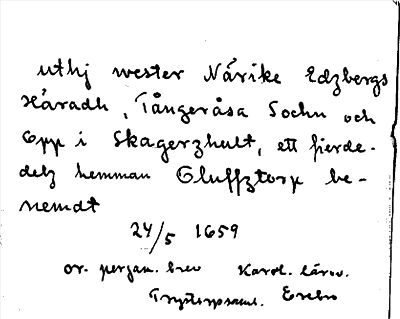 uthj wester Närike Edzbergs
Häradh, Tångeråsa Sochn och
Opp i Skagerzhult, ett fierde-
delz hemman Oluffztorp be-
nemdt
24/5 1659
or. pergam. brev Karol. lärov.
Örebro